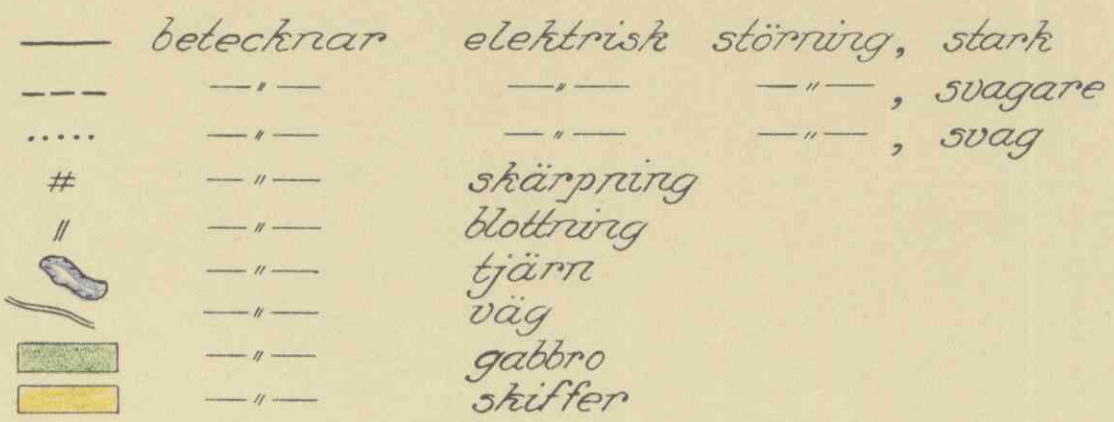 betecknar elektrisk störning, stark
—〃— —〃— —〃—, svagare
—〃— —〃— —〃—, svag
# —〃— skärpning
〃 —〃— blottning
—〃— tjärn
—〃— väg
—〃— gabbro
—〃— skiffer